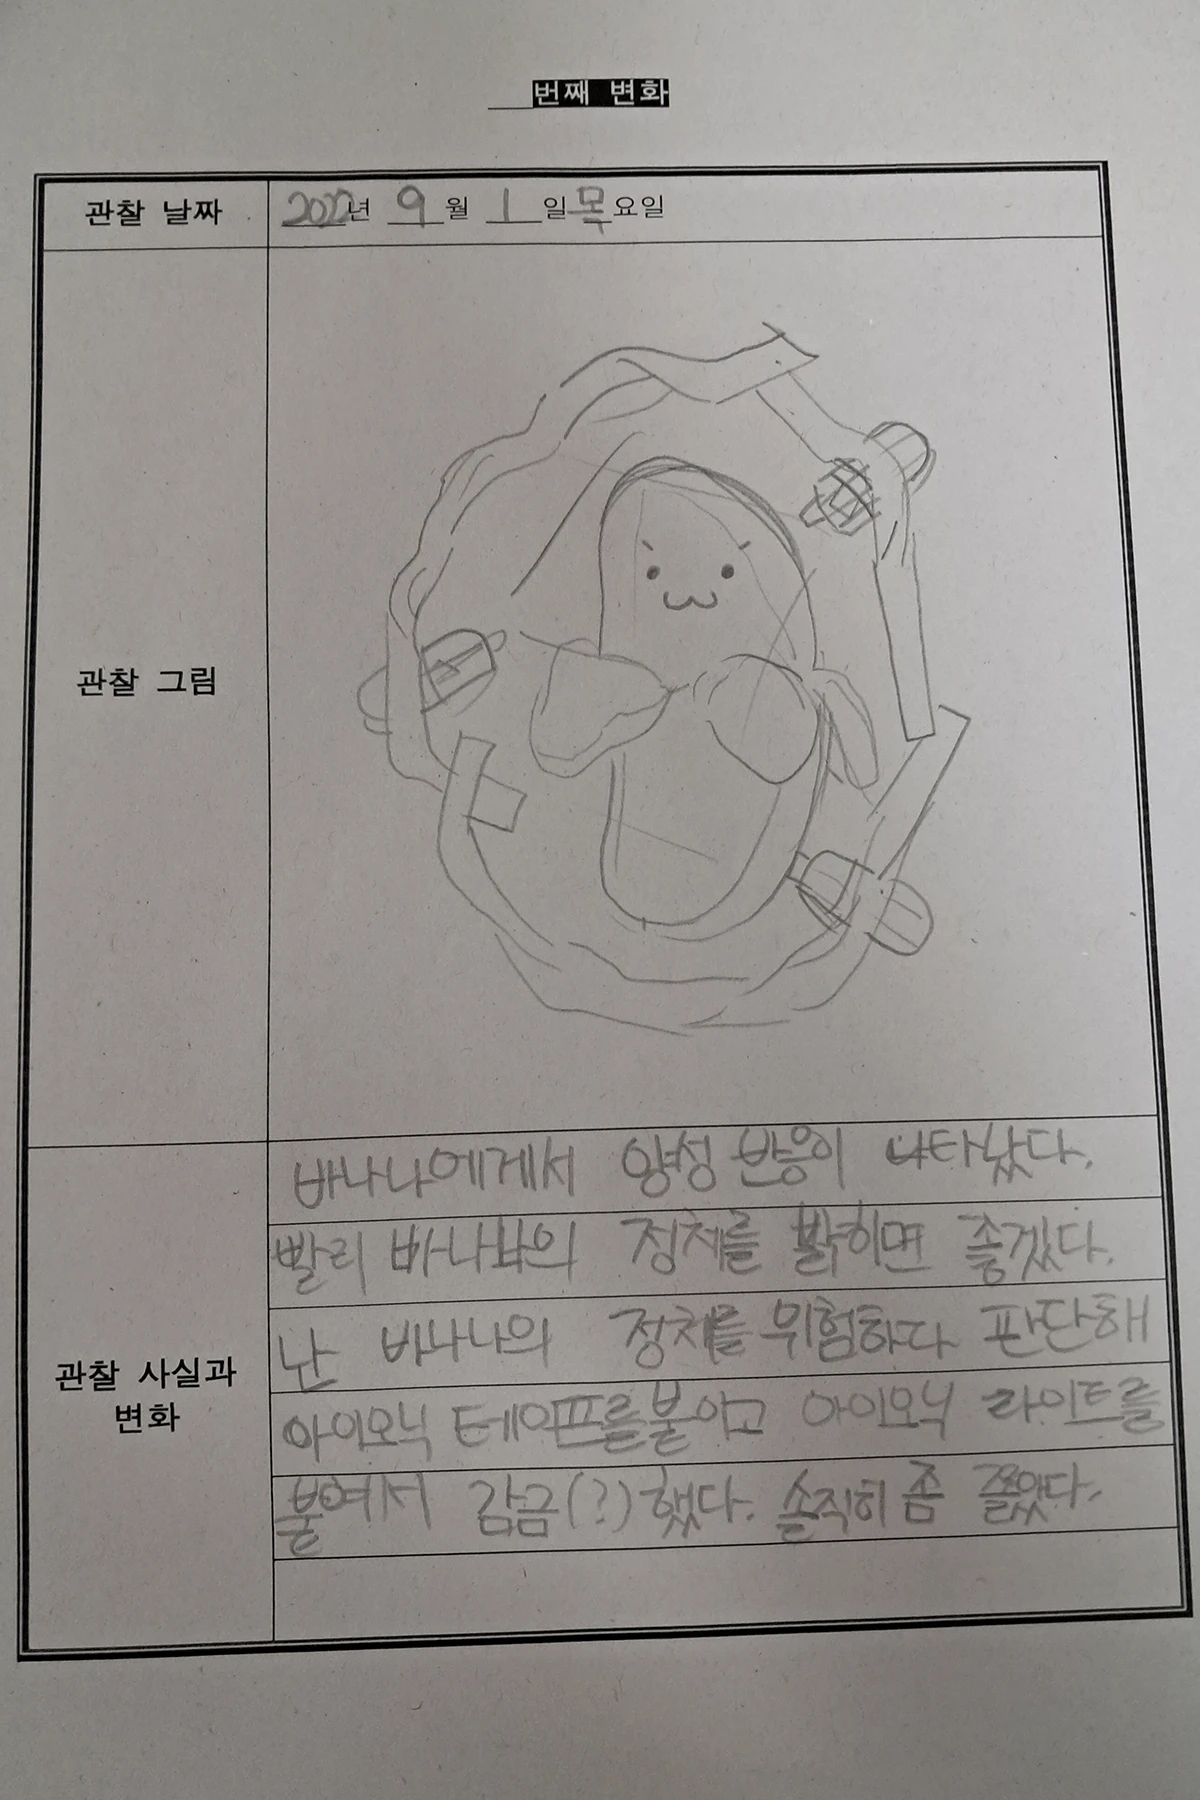 번째 변화
관찰 날짜
2022년 9월 1일 목요일
관찰 그림
관찰 사실과
변화
바나나에게서 양성 반응이 나타났다.
빨리 바나나의 정체를 밝히면 좋겠다.
난 바나나의 정체를 위험하다 판단해
아이오닉 테이프를 붙이고 아이오닉 라이트를
붙여서 감금(?)했다. 솔직히 좀 쫄았다.